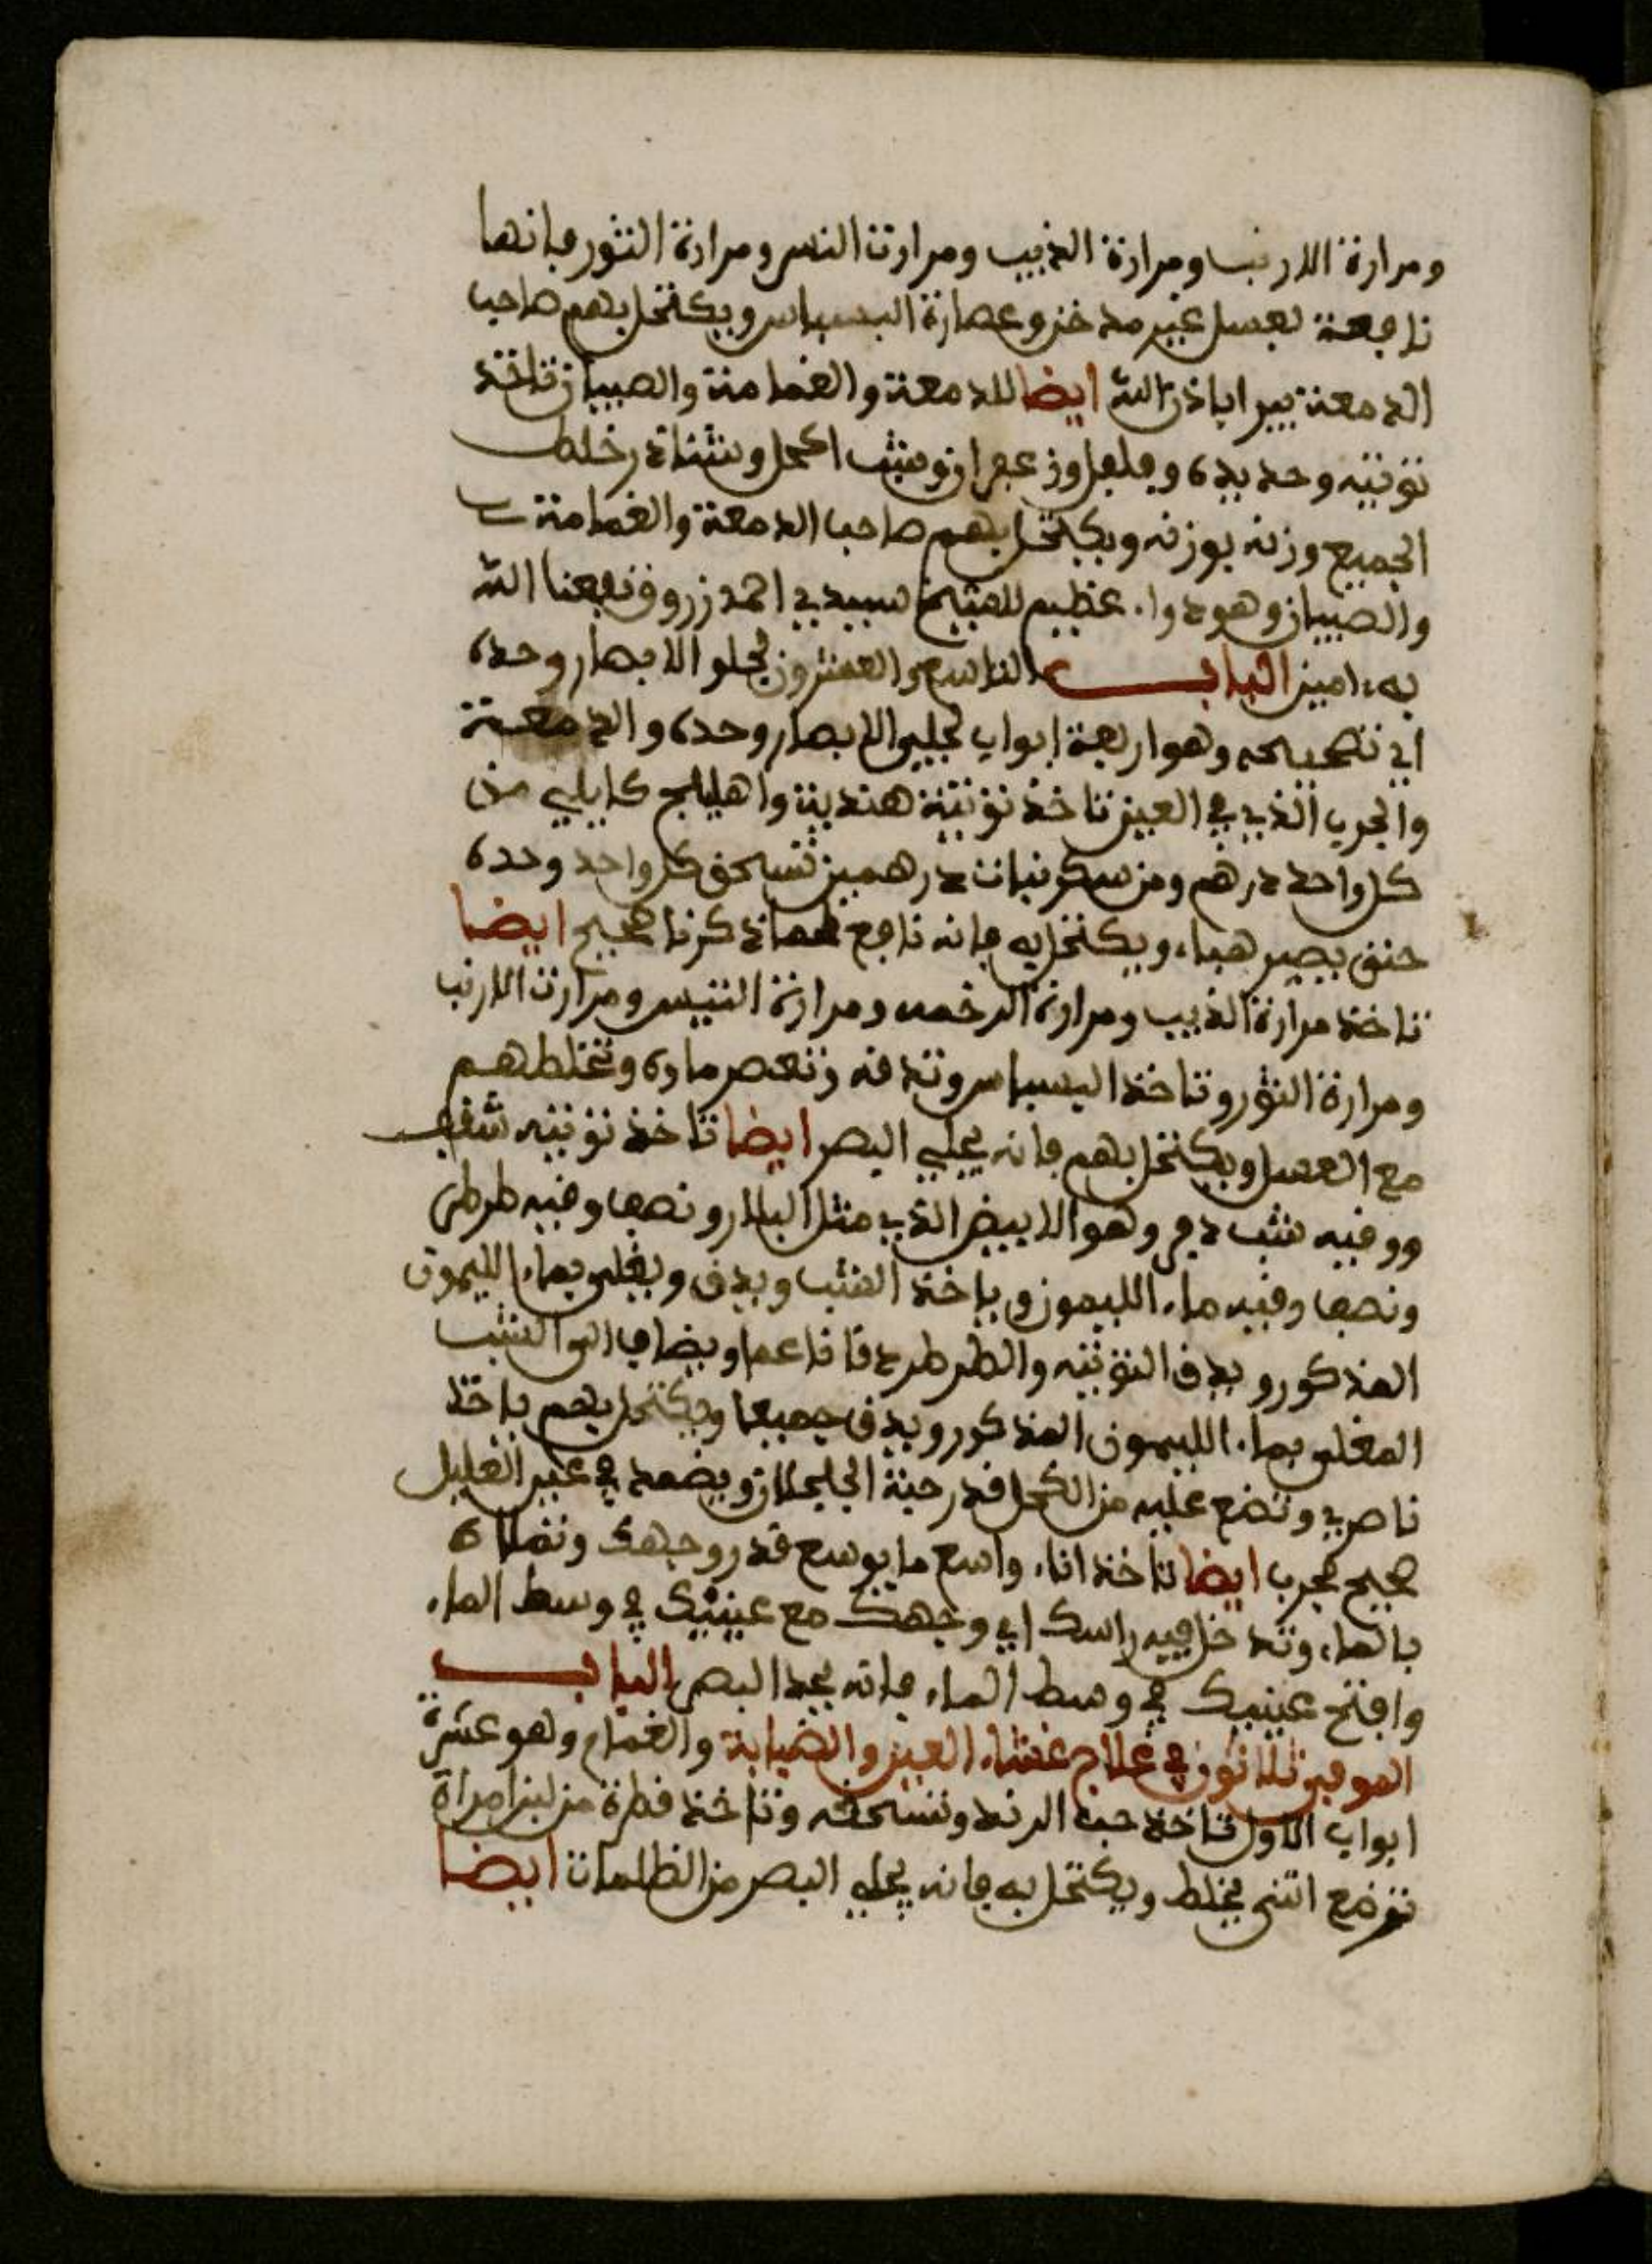 ومرارة الارنب ومرارة الذيب ومرارت النسر ومرارة الثور فانها
نافعة لعسل غير مدخن وعصارة البسباس ويكتحل بهم صاحب
الدمعة يبرا باذن الله ايضا للدمعة والغمامة والصيبان تاخذ
توتيه وحديدة وفلفل وزعفران وشب اكحل ونشادر خلط
الجميع وزنه بوزنه ويكتحل بهم صاحب الدمعة والغمامة
والصيبان وهو دواء عظيم للشيخ سيدي احمد زروق نفعنا الله
به امين الباب التاسع والعشرون لجلو الابصار وحدة
اي تصحيحه وهو اربعة ابواب لجلي الابصار وحدة والدمعة
والجرب الذي في العين تاخذ توتية هندية واهليلج كابلي من
كل واحد درهم ومن سكر نبات درهمين تسحق كل واحد وحده
حتى يصير هباء ويكتحل به فانه نافع لما ذكرنا صحيح ايضا
تاخذ مرارة الذيب ومرارة الرخمه ومرارة التيس ومرارت الارنب
ومرارة الثور وتاخذ البسباس وتدقه وتعصر ماءه وتخلطهم
مع العسل ويكتحل بهم فانه يجلي البصر ايضا تاخذ توتيه شقف
ووقيه شب دفر وهو الابيض الذي مثل البلار ونصف وقيه طرطر
ونصف وقيه ماء الليمون وياخذ الشب ويدق ويغلى بماء الليمون
المذكور ويدق التوتيه والطرطر دقا ناعما ويضاف الى الشب
المغلى بماء الليمون المذكور ويدق جميعا ويكتحل بهم ياخذ
ناصري وتضع عليه من الكحل قدر حبة الجلجلان ويضعه في عين العليل
صحيح مجرب ايضا تاخذ اناء واسع ما يوسع قدر وجهك وتملاه
بالماء وتدخل فيه راسك اي وجهك مع عينيك في وسط الماء
وافتح عينيك في وسط الماء فانه يحد البصر الباب
الموفي ثلاثون في علاج غشاء العين والضبابة والغمام وهو عشرة
ابواب الاول تاخذ حب الرند وتسحقه وتاخذ قطرة من لبن امراة
ترضع انثى يخلط ويكتحل به فانه يجلي البصر من الظلمات ايضا